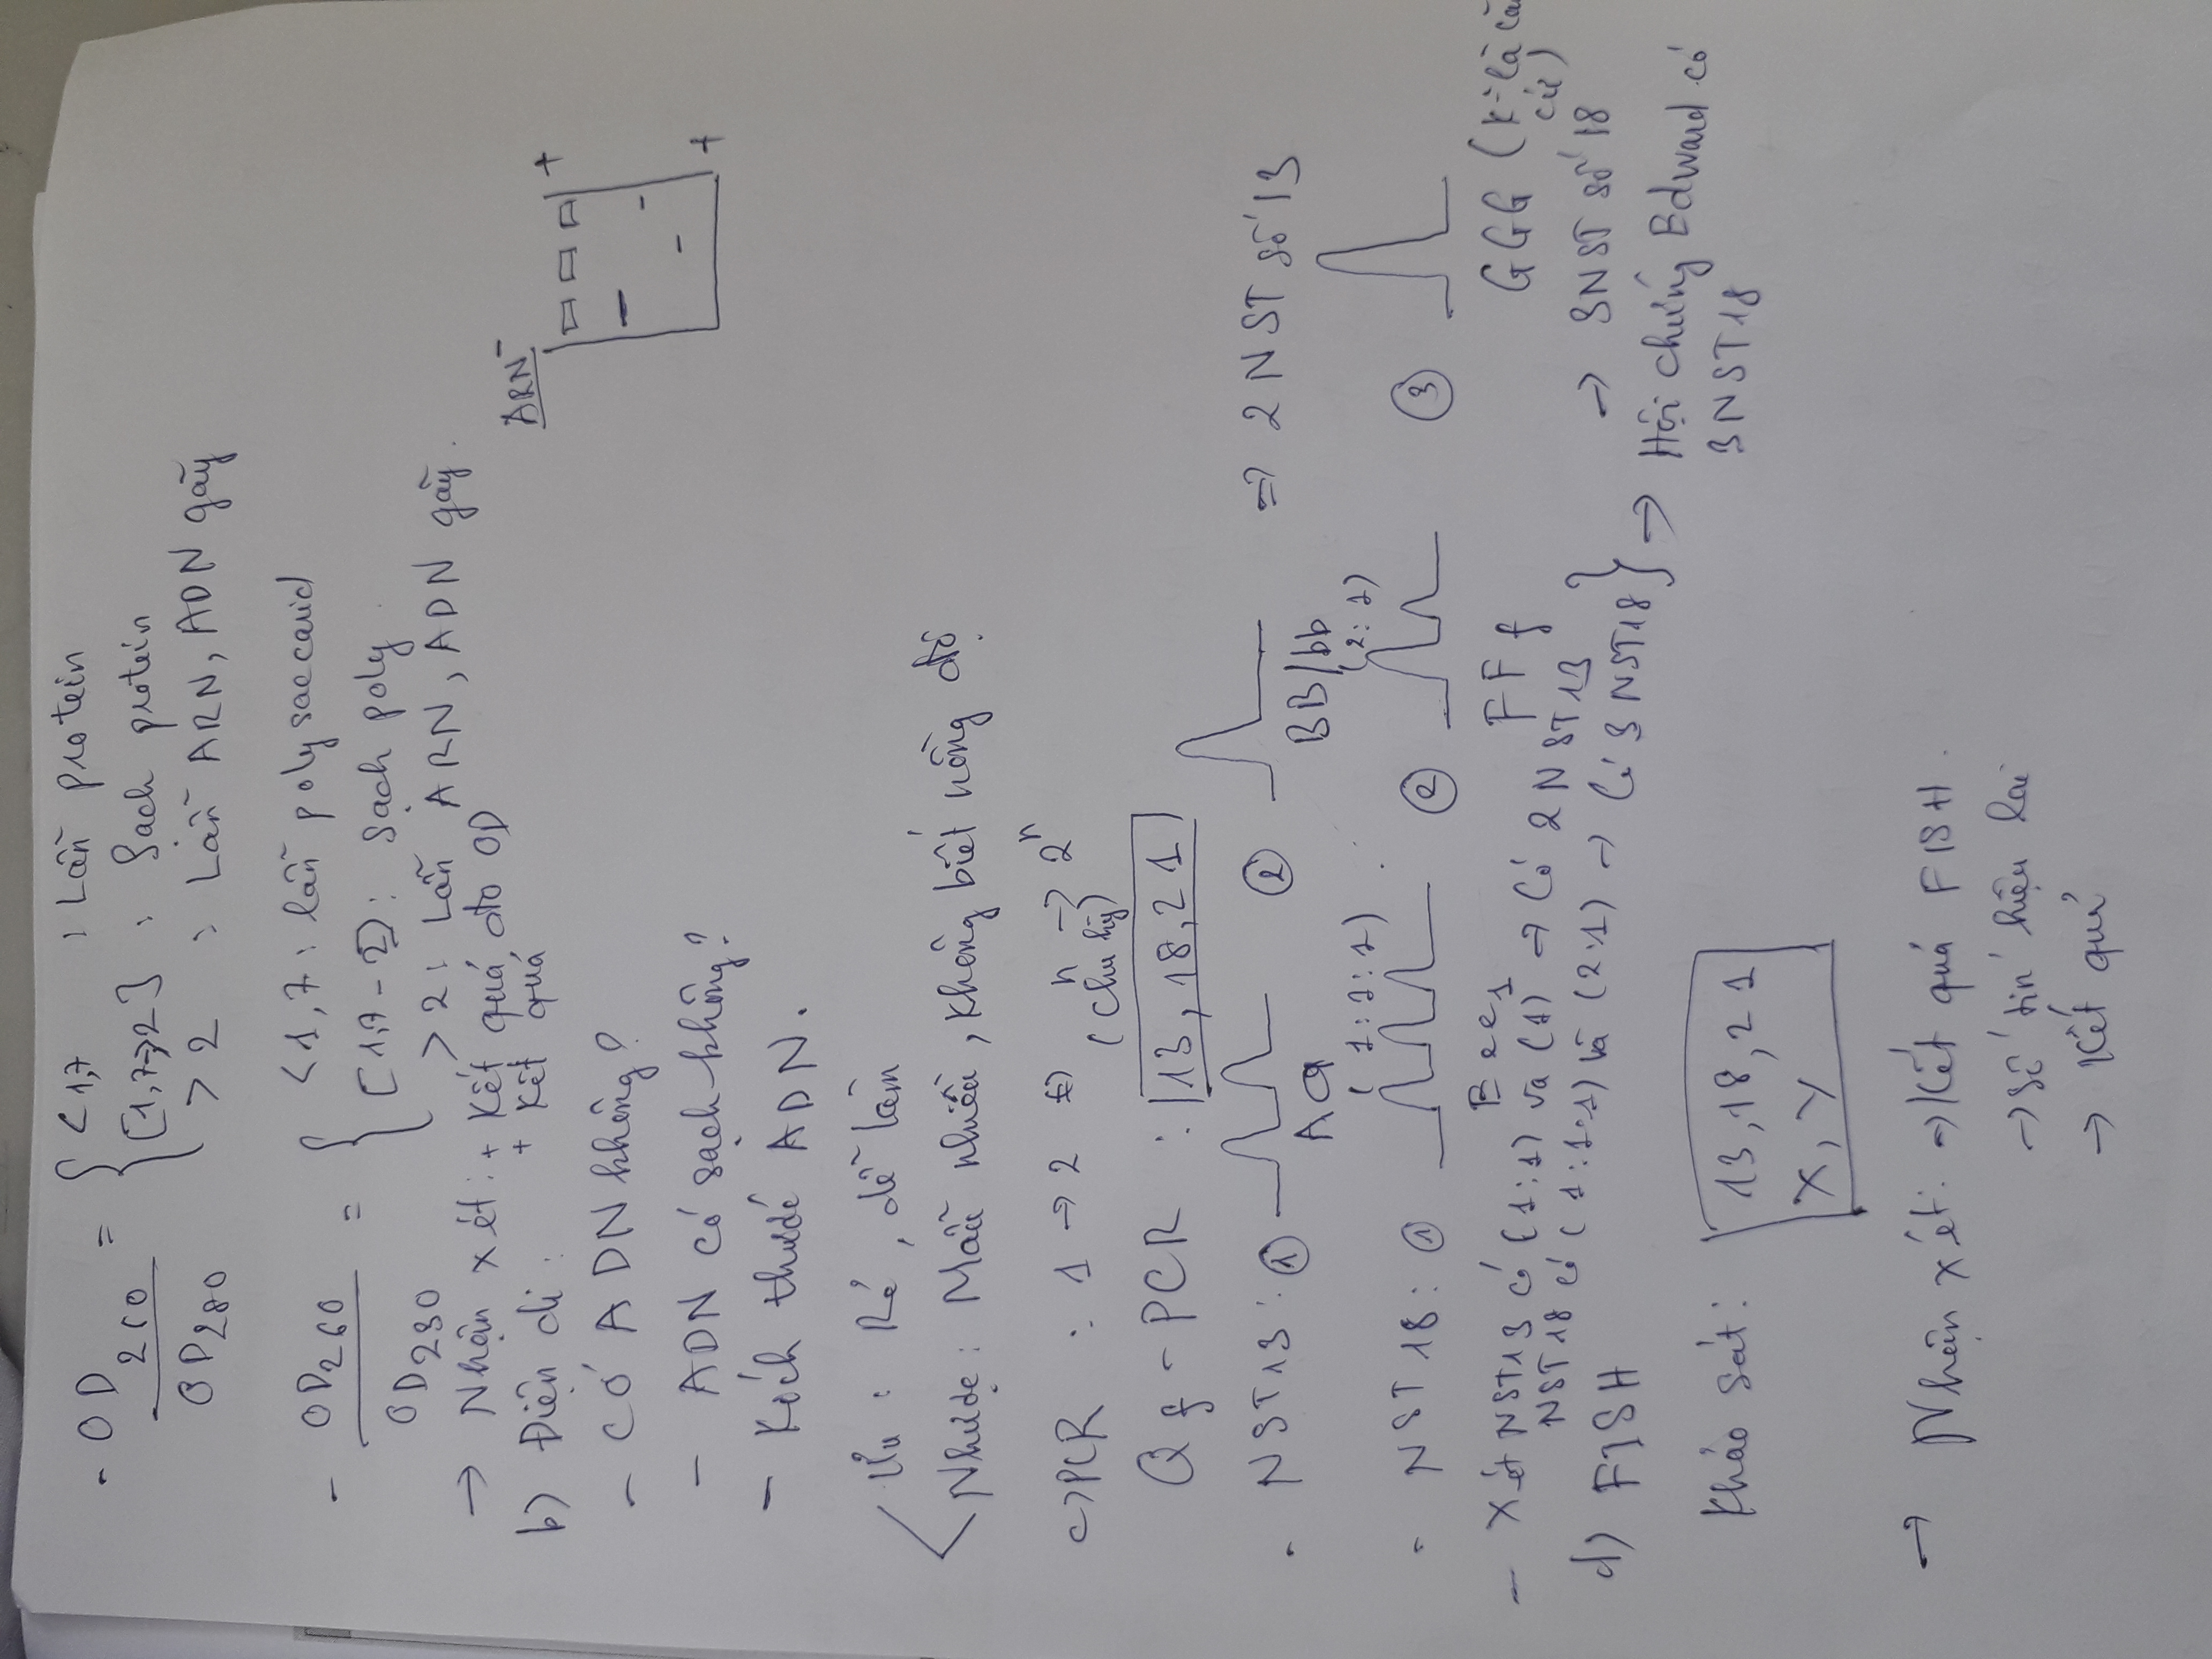 - OD260 / OD280 = { < 1,7 : Lẫn protein
[1,7→2] : Sạch protein
> 2 : Lẫn ARN, ADN gãy
- OD260 / OD230 = { < 1,7 : lẫn polysaccarid
[1,7 - 2] : Sạch poly
> 2 : Lẫn ARN, ADN gãy.
→ Nhận xét : + Kết quả đo OD
+ Kết quả
b) Điện di :
ARN -
+
+
- CÓ ADN không?
- ADN có sạch không?
- Kích thước ADN.
Ưu : Rẻ, dễ làm
Nhược : Mẫu nhiều, không biết nồng độ
c) PCR : 1 → 2 n → 2^n
(chu kỳ)
Qf - PCR : 13, 18, 21
- NST 13 : ① ② ⇒ 2 NST số 13
Aa BB/bb
(1:1:1) (2:1)
- NST 18 : ① ② ③
Eee1 FFf GGG (K là căn cứ)
- Xét NST13 có (1:1) và (1) → Có 2 NST13
NST 18 có (1:1:1) và (2:1) → Có 3 NST18 } → Hội chứng Edward có 3 NST18
→ 3NST số 18
d) FISH
Khảo sát : 13, 18, 21
X, Y
→ Nhận xét : → Kết quả FISH.
→ Số tín hiệu lai
→ Kết quả